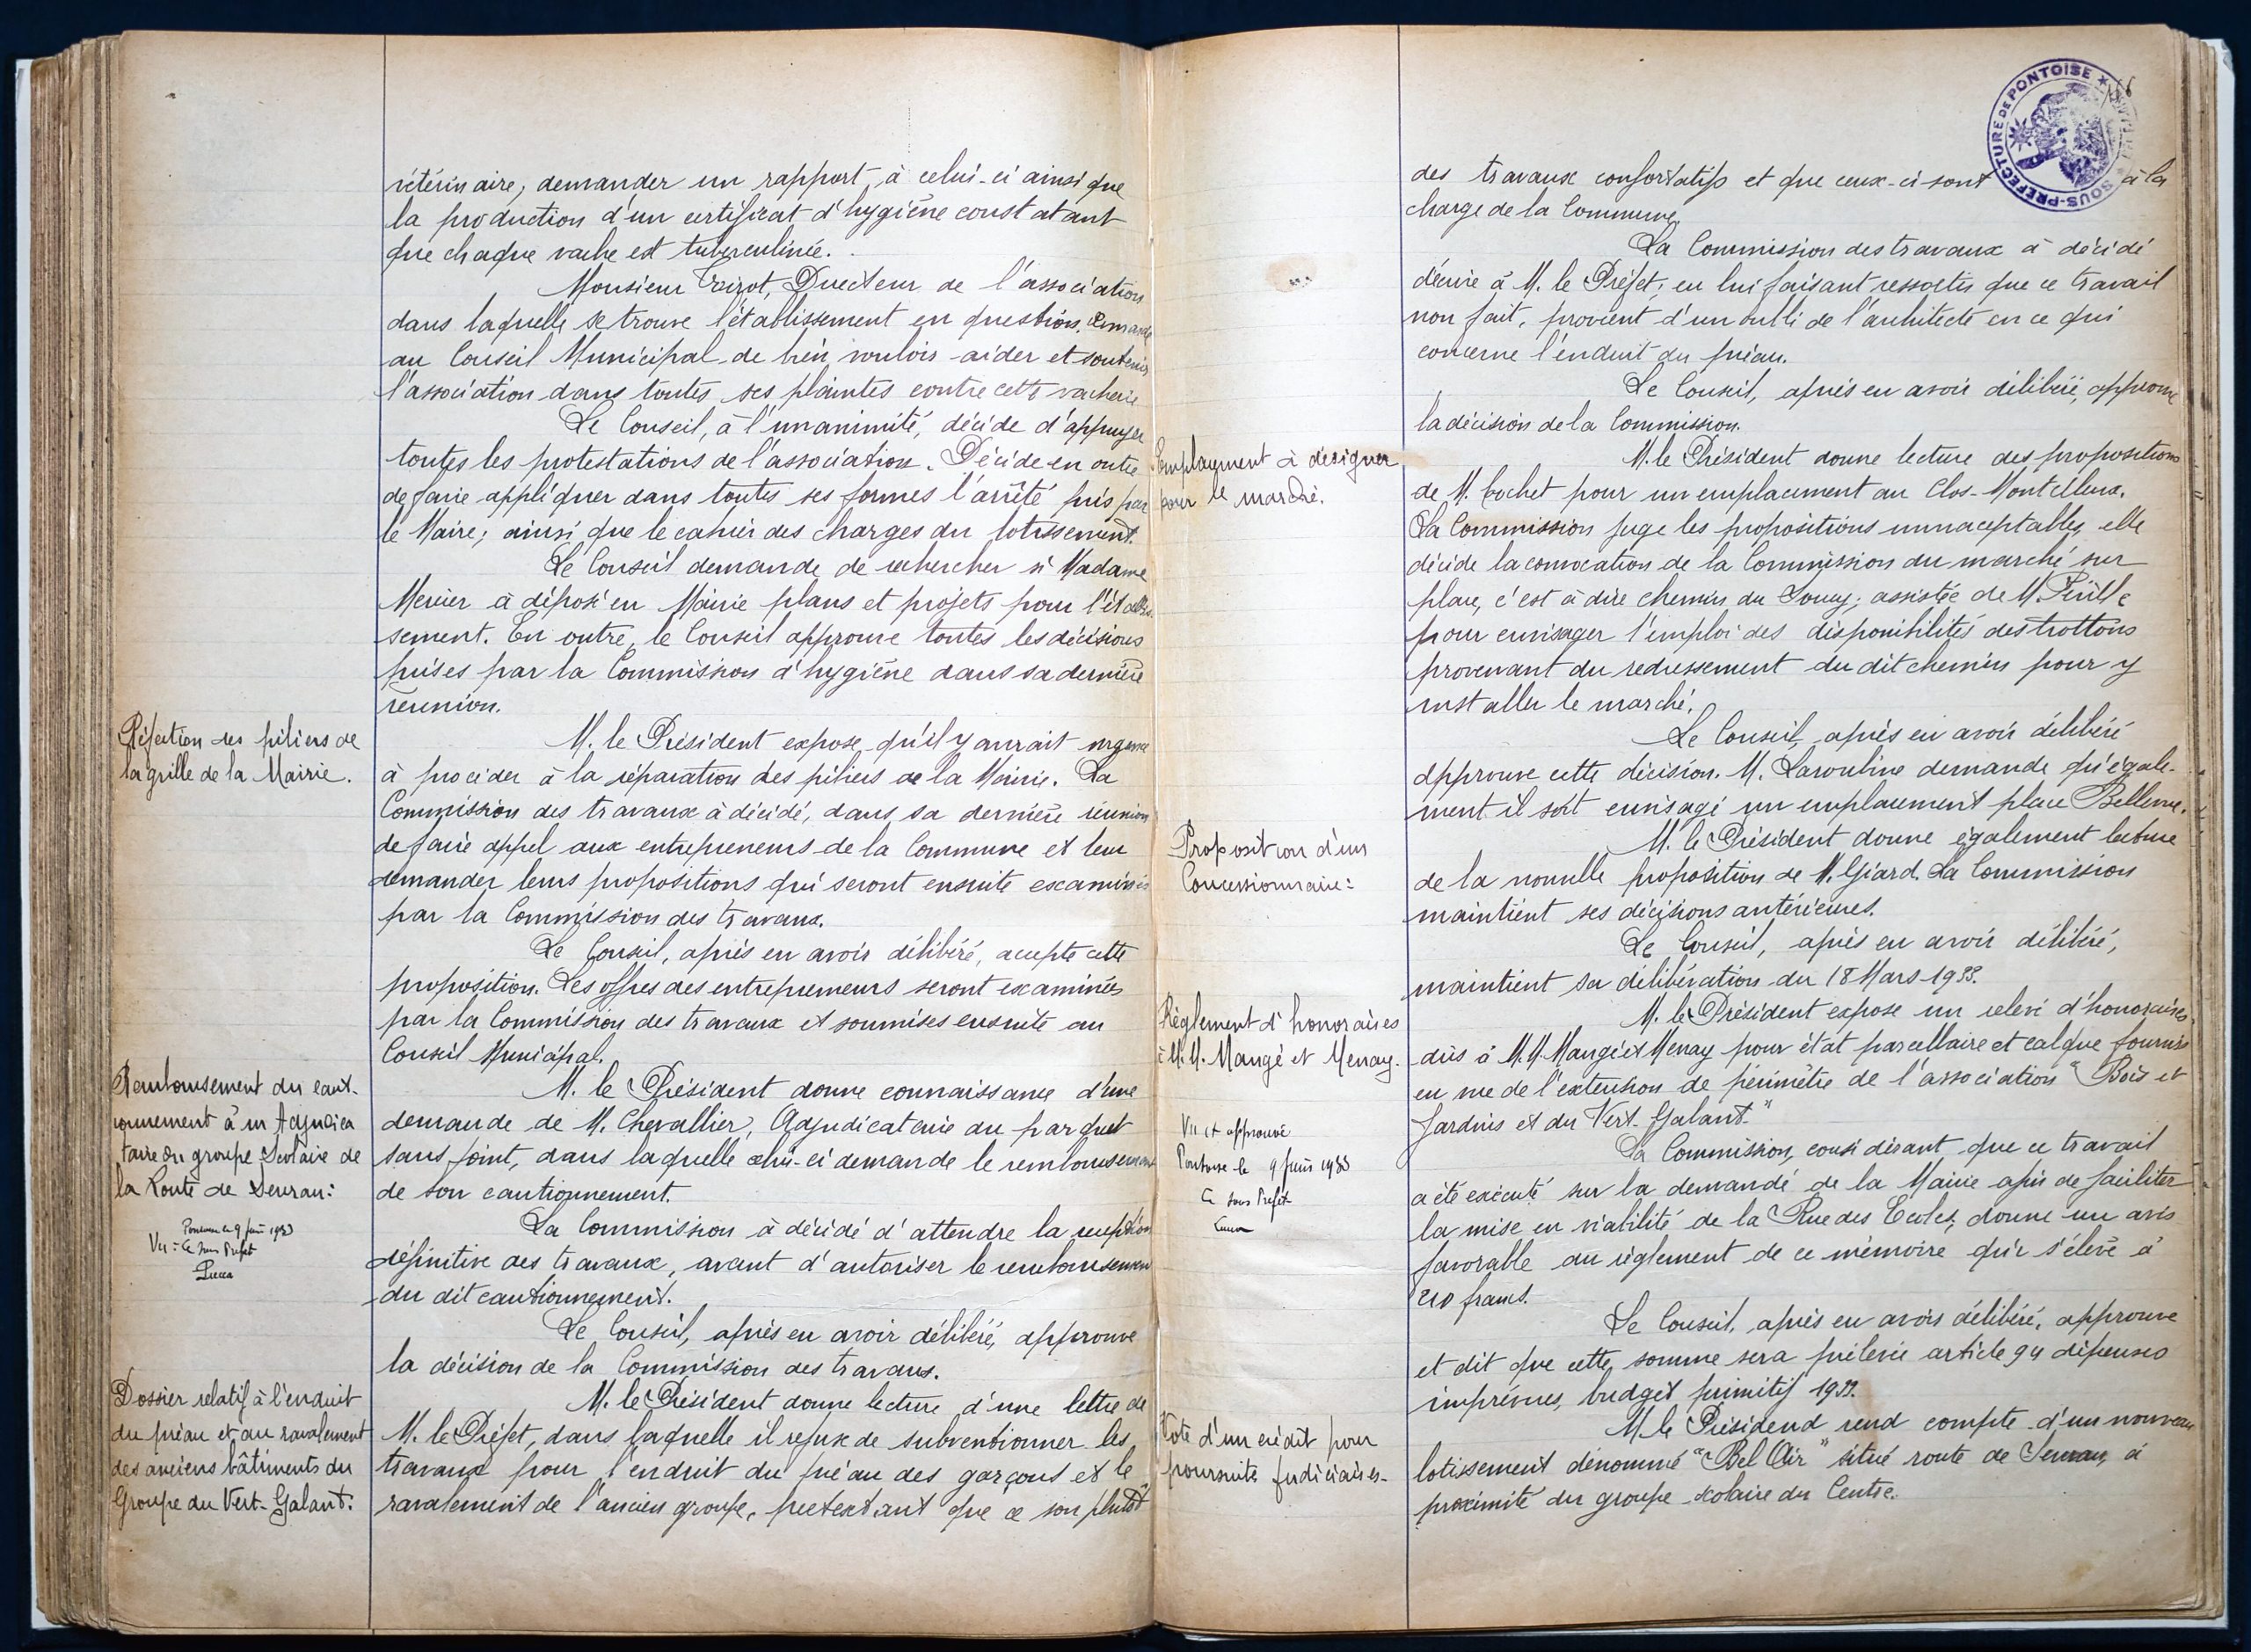 vétérinaire; demander un rapport à celui-ci ainsi que
la production d'un certificat d'hygiène constatant
que chaque vache est tuberculinée.
Monsieur Directeur de l'association
dans laquelle se trouve l'établissement en question, demande
au Conseil Municipal de bien vouloir aider et soutenir
l'association dans toutes ses plaintes contre cette vacherie
Le Conseil, à l'unanimité, décide d'appuyer
toutes les protestations de l'association. Décide en outre
de faire appliquer dans toutes ses formes l'arrêté pris par
le Maire; ainsi que le cahier des charges du lotissement.
Le Conseil demande de rechercher si Madame
Mercier à déposé en Mairie plans et projets pour l'établis-
sement. En outre, le Conseil approuve toutes les décisions
prises par la Commission d'hygiène dans sa dernière
réunion.
Réfection des piliers de
la grille de la Mairie.
M. le Président expose qu'il y aurait urgence
à procéder à la réparation des piliers de la Mairie. La
Commission des travaux à décidé, dans sa dernière réunion
de faire appel aux entrepreneurs de la Commune et leur
demander leurs propositions qui seront ensuite examinées
par la Commission des travaux.
Le Conseil, après en avoir délibéré, accepte cette
proposition. Les offres des entrepreneurs seront examinées
par la Commission des travaux et soumises ensuite au
Conseil Municipal.
Remboursement du caut-
ionnement à un Adjudica
taire du groupe Scolaire de
la Route de Sevran:
Pontoise le 9 juin 1933
Vu: Le Sous Préfet
M. le Président donne connaissance d'une
demande de M. Chevallier, Adjudicataire du parquet
sans joint, dans laquelle celui-ci demande le remboursement
de son cautionnement.
La Commission à décidé d'attendre la réception
définitive des travaux, avant d'autoriser le remboursement
du dit cautionnement.
Le Conseil, après en avoir délibéré, approuve
la décision de la Commission des travaux.
Dossier relatif à l'enduit
du préau et au ravalement
des anciens bâtiments du
Groupe du Vert-Galant:
M. le Président donne lecture d'une lettre de
M. le Préfet, dans laquelle il refuse de subventionner les
travaux pour l'enduit du préau des garçons et le
ravalement de l'ancien groupe, prétextant que ce son plutôt
SOUS-PREFECTURE DE PONTOISE
des travaux confortatifs et que ceux-ci sont à la
charge de la Commune.
La Commission des travaux à décidé
d'écrire à M. le Préfet, en lui faisant ressortir que ce travail
non fait, provient d'un oubli de l'architecte en ce qui
concerne l'enduit du préau.
Le Conseil, après en avoir délibéré, approuve
la décision de la Commission.
Emplacement à désigner
pour le marché.
M. le Président donne lecture des propositions
de M. Cochet pour un emplacement au Clos-Montceleux.
La Commission juge les propositions innaceptables, elle
décide la convocation de la Commission du marché sur
place, c'est à dire chemin du Soucy; assistée de M.
pour envisager l'emploi des disponibilités des trottoirs
provenant du redressement du dit chemin pour y
installer le marché.
Le Conseil, après en avoir délibéré
approuve cette décision. M. Larouline demande qu'égale-
ment il soit envisagé un emplacement place Bellevue.
Proposition d'un
Concessionnaire:
M. le Président donne également lecture
de la nouvelle proposition de M. Giard. La Commission
maintient ses décisions antérieures.
Le Conseil, après en avoir délibéré,
maintient sa délibération du 18 Mars 1933.
Règlement d'honoraires
à M.M. Mangé et Menay.
Vu et approuvé
Pontoise le 9 juin 1933
Le Sous Préfet
M. le Président expose un relevé d'honoraires
dûs à M.M. Mangé et Menay pour état parcellaire et calque fournis
en vue de l'extension de périmètre de l'association "Bois et
Jardins et du Vert-Galant"
La Commission, considérant que ce travail
a été exécuté sur la demande de la Mairie afin de faciliter
la mise en viabilité de la Rue des Ecoles, donne un avis
favorable au règlement de ce mémoire qui s'élève à
210 francs.
Le Conseil, après en avoir délibéré, approuve
et dit que cette somme sera prélevée article 94 dépenses
imprévues, budget primitif 1933.
Vote d'un crédit pour
poursuites judiciaires.
M. le Présidend rend compte d'un nouveau
lotissement dénommé "Bel Air" situé route de Sevran, à
proximité du groupe scolaire du Centre.